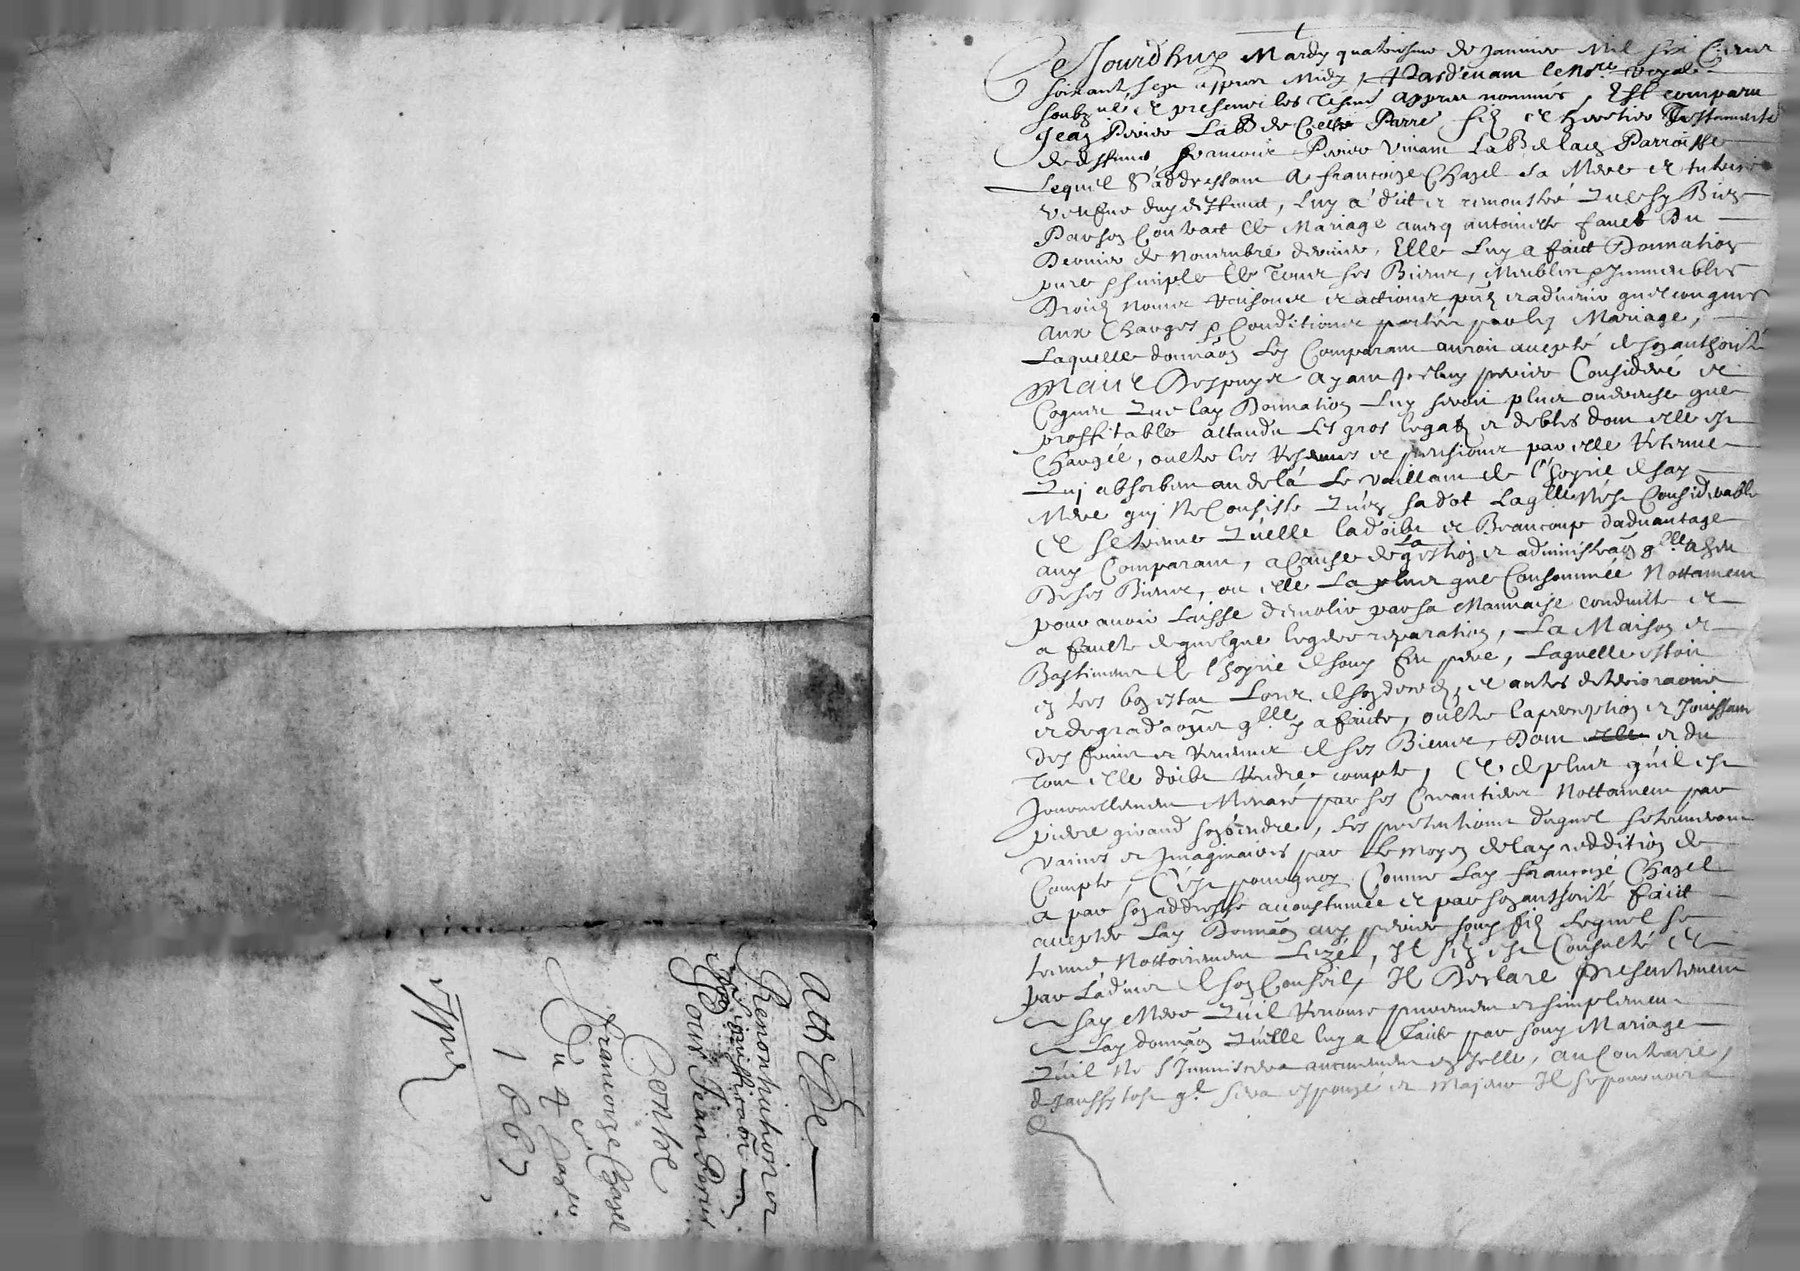 Ce Jourdhuy Mardy quatriesme de Janvier Mil six Cens
soixante sept appres Midy, Pardevant le No.re royal
soubz.né et presens les tesmo appres nommés, Est comparu
Jean Perier Lab.r de Parre filz et heretier Testamente
de deffunt francois Perier vivant Lab.r de lad Parroisse
Lequel S'addressant A francoize Chazel sa Mere et tuterie
veufve dud deffunt, Luy a dit et remonstré Que Bien
Par son Contract de Mariage avecq antoinette favet Du
Dernier de Novembre dernier, Elle Luy a fait Donnation
pure & simple de Tous ses Biens, Meubles & Jmmeubles
Droicts noms raisons et actions pnts et advenir quelconques
aux Charges & Conditions portées par led Mariage,
Laquelle donnaon Led Comparant auroit accepté de son authorité
Mais Despuys ayant Jceluy perier Consideré et
Cogneu Que lad Donnation Luy seroit plus onereuse que
proffitable attandu Les gros legatz et debtes dont elle est
Chargée, oultre les reserves et pensions par elle retenue
Quj absorbent au dela Le vaillant de l'hoyrie de sad
Mere quj Ne Consiste Qu'en sa dot Laq.lle N'est Considerable
Et se treuve Qu'elle la doibt et Beaucoup d'advantage
aud Comparant, a Cause de sa gestion et administraon q.lle a heu
De ses Biens, ou elle La plus que Consommée Nottament
pour avoir laissé desmolir par sa Mauvaise conduitte et
a faulte de quelque legere reparation, La Maison et
Bastimens de l'hoyrie de soud feu pere, Laquelle estoit
en tres bon estat Lors de son deces, et autres deterioraons
et degradaons q.lle y a faicte, oultre la perception et Jouissance
des fruits et revenus de ses Biens, Dont et du
Tout elle doibt rendre compte, Et de plus qu'il est
Journellement Menacé par ses Creantiers Nottament par
pierre giraud son gendre, Les pretentions duquel se treuveront
vaines et Jmaginaires par Le moyen de lad reddition de
Compte, C'est pourquoy Comme Lad francoize Chazel
a par son addresse accoustumée et par son authorité faict
accepter Lad Donnaon aud perier soud filz Lequel se
treuve Nottoirement Lezé, Il s'en est Consulté Et
par L'advis de son Conseil, Il Declare Presentement
a sad Mere Qu'il renonce purement et simplement
a Lad donnaon Qu'elle luy a faicte par soud Mariage
Qu'il Ne s'Jmmiscera aucunement en Jcelle, au Contraire,
d'aussytost q.l sera espouze et Majeur Il se pourvoira
acte De
Renontiation et
signiffication
Pour Jean Perier
Contre
francoize Chazel
Du 4e Janvier
1667